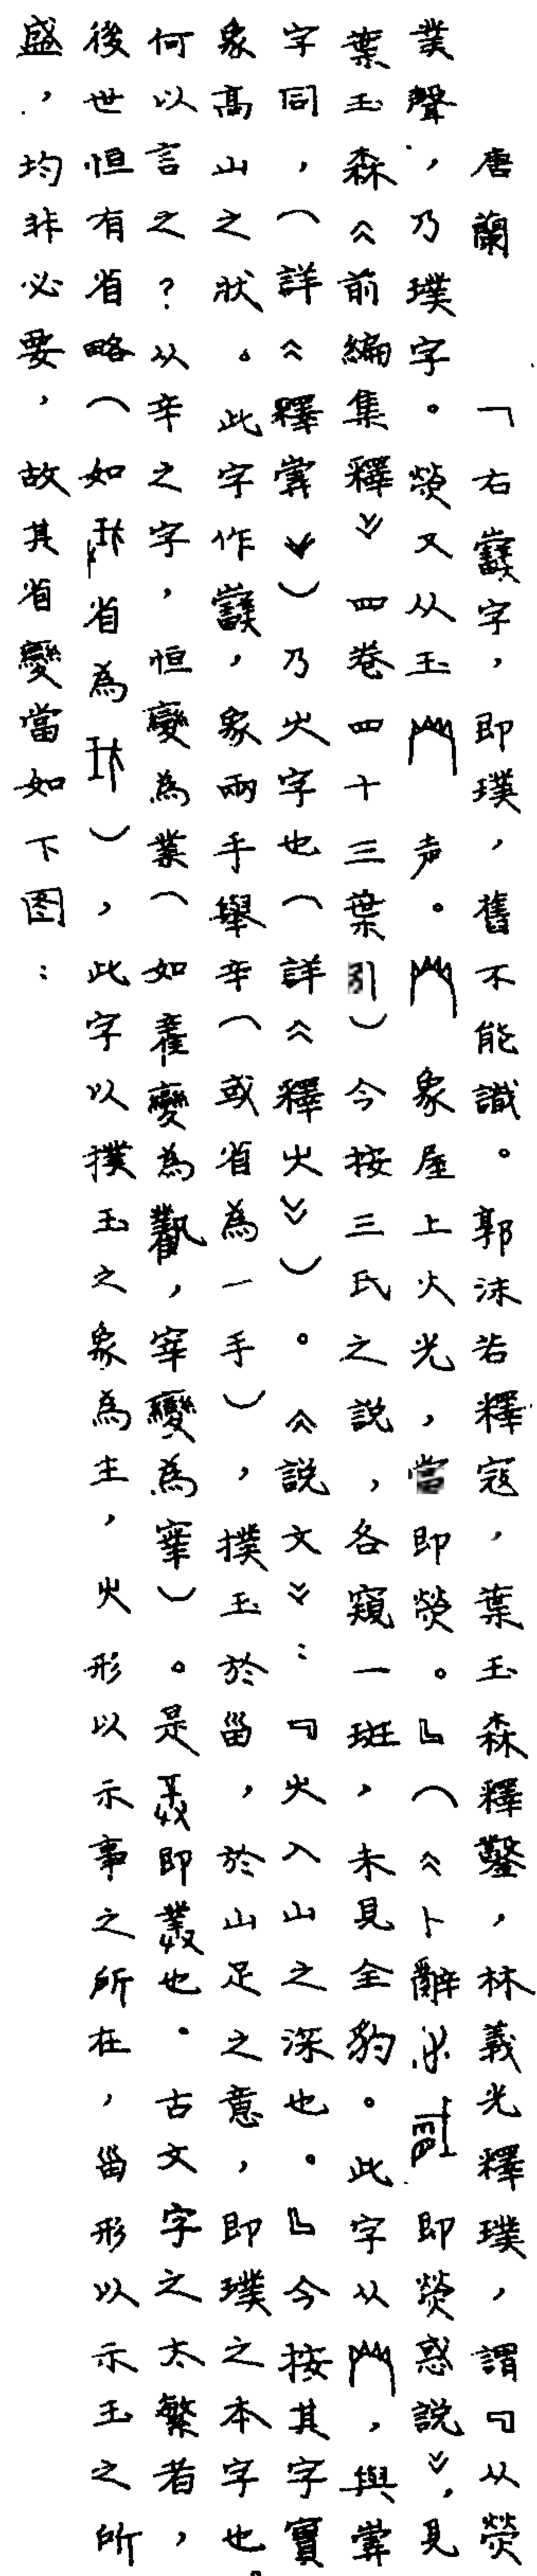 唐蘭 「右字,即璞,舊不能識。郭沫若釋寇,葉玉森釋鑿,林義光釋璞,謂『从熒
業聲,乃璞字。熒又从玉声。象屋上火光,當即熒。』(《卜辭即熒惑説》,見
葉玉森《前編集釋》四卷四十三葉引)今按三氏之説,各窺一斑,未見全豹。此字从,與
字同,(詳《釋》)乃火字也(詳《釋火》)。《説文》:『火入山之深也。』今按其字實
象高山之狀。此字作,象兩手舉辛(或省為一手),撲玉於甾,於山足之意,即璞之本字也
何以言之?从辛之字,恒變為業(如變為,宰變為)。是即也。古文字之太繁者,
後世恒有省略(如省為),此字以撲玉之象為主,火形以示事之所在,甾形以示玉之所
盛,均非必要,故其省變當如下图: